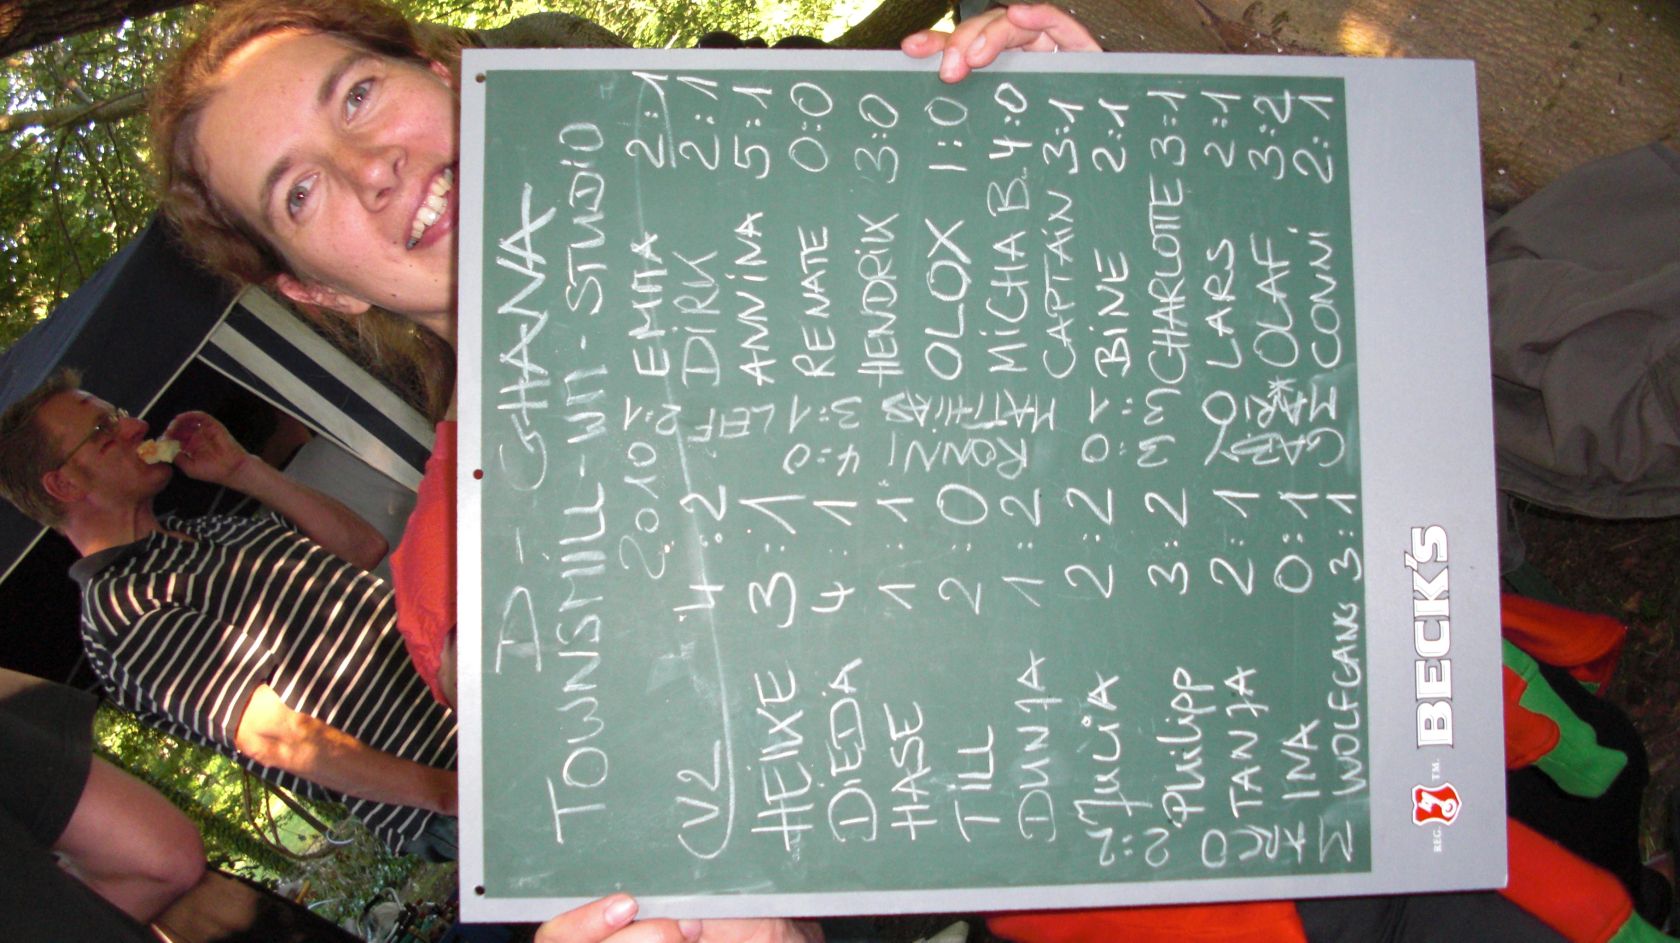 D - GHANA
TOWNSMILL-WM-STUDIO
2010
V2 4:2 EMMA 2:1
DIRK 2:1
LEIF 2:1
HEIKE 3:1 ANNINA 5:1
DIEDA 4:1 RENATE 0:0
HASE 1:1 HENDRIK 3:0
TILL 2:0 OLOX 1:0
DUNJA 1:2 MICHA B. 4:0
JULIA 2:2 CAPTAIN 3:1
BINE 2:1
PHILIPP 3:2 CHARLOTTE 3:1
TANJA 2:1 LARS 2:1
INA 0:1 OLAF 3:2
WOLFGANG 3:1 CONNI 2:1
MATTHIAS 3:1
RONNI 4:0
0:1
2:2
REG. TM.
BECK'S